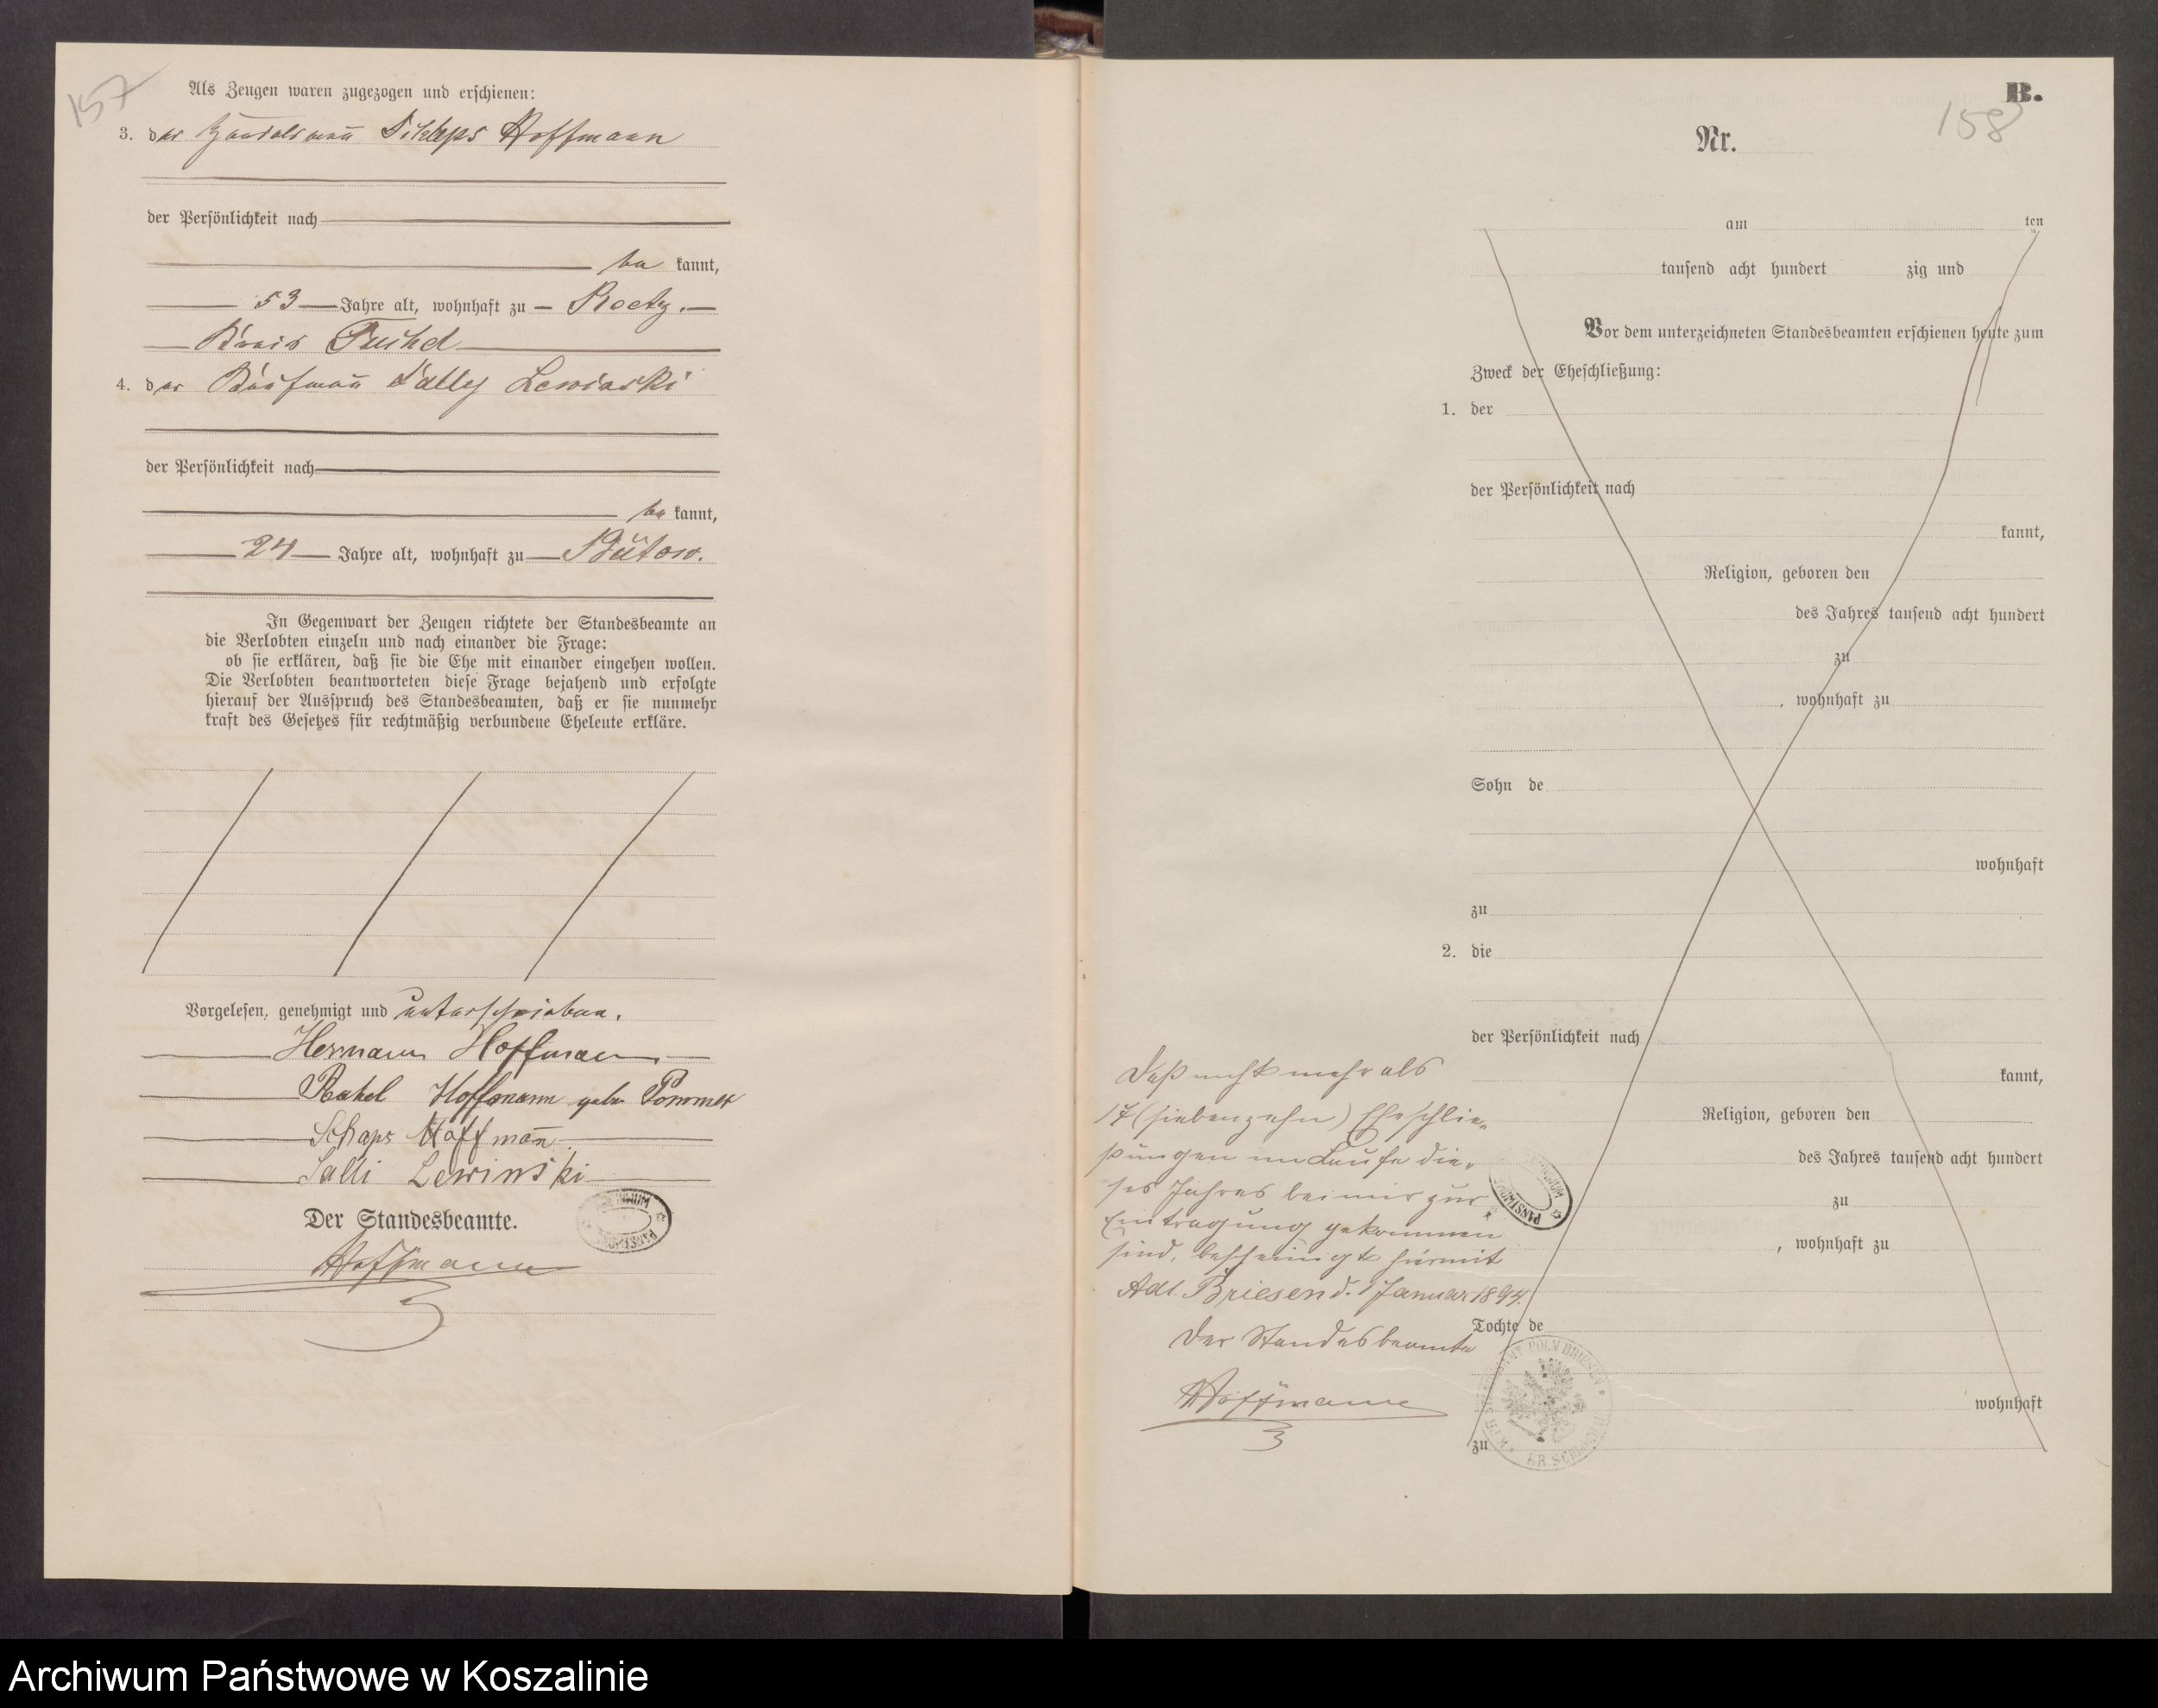 157
Als Zeugen waren zugezogen und erschienen:
3. der Handelsmañ Hoffmann
der Persönlichkeit nach
be kannt,
53 Jahre alt, wohnhaft zu
Kreis Tuchel
4. der Kaufmañ Sally Lewinski
der Persönlichkeit nach
be kannt,
24 Jahre alt, wohnhaft zu Bütow.
In Gegenwart der Zeugen richtete der Standesbeamte an
die Verlobten einzeln und nach einander die Frage:
ob sie erklären, daß sie die Ehe mit einander eingehen wollen.
Die Verlobten beantworteten diese Frage bejahend und erfolgte
hierauf der Ausspruch des Standesbeamten, daß er sie nunmehr
kraft des Gesetzes für rechtmäßig verbundene Eheleute erkläre.
Vorgelesen, genehmigt und unterschrieben.
Hermann Hoffmann.
Rahel Hoffmann geb. Pommer
Schaps Hoffmañ.
Salli Lewinski
Der Standesbeamte.
Hoffmann
B.
158
Nr.
am ten
tausend acht hundert zig und
Vor dem unterzeichneten Standesbeamten erschienen heute zum
Zweck der Eheschließung:
1. der
der Persönlichkeit nach
kannt,
Religion, geboren den
des Jahres tausend acht hundert
zu
, wohnhaft zu
Sohn de
wohnhaft
zu
2. die
der Persönlichkeit nach
kannt,
Religion, geboren den
des Jahres tausend acht hundert
zu
, wohnhaft zu
Tochte de
wohnhaft
zu
Daß nicht mehr als
17 (siebenzehn) Eheschlie-
ßungen im Laufe die-
ses Jahres bei mir zur
Eintragung gekommen
sind, bescheinigt hiermit
Adl. Briesen d. 1 Januar 1894.
Der Standesbeamte
Hoffmann
POLN BRIESEN
KR SCHLOCHAU
Archiwum Państwowe w Koszalinie